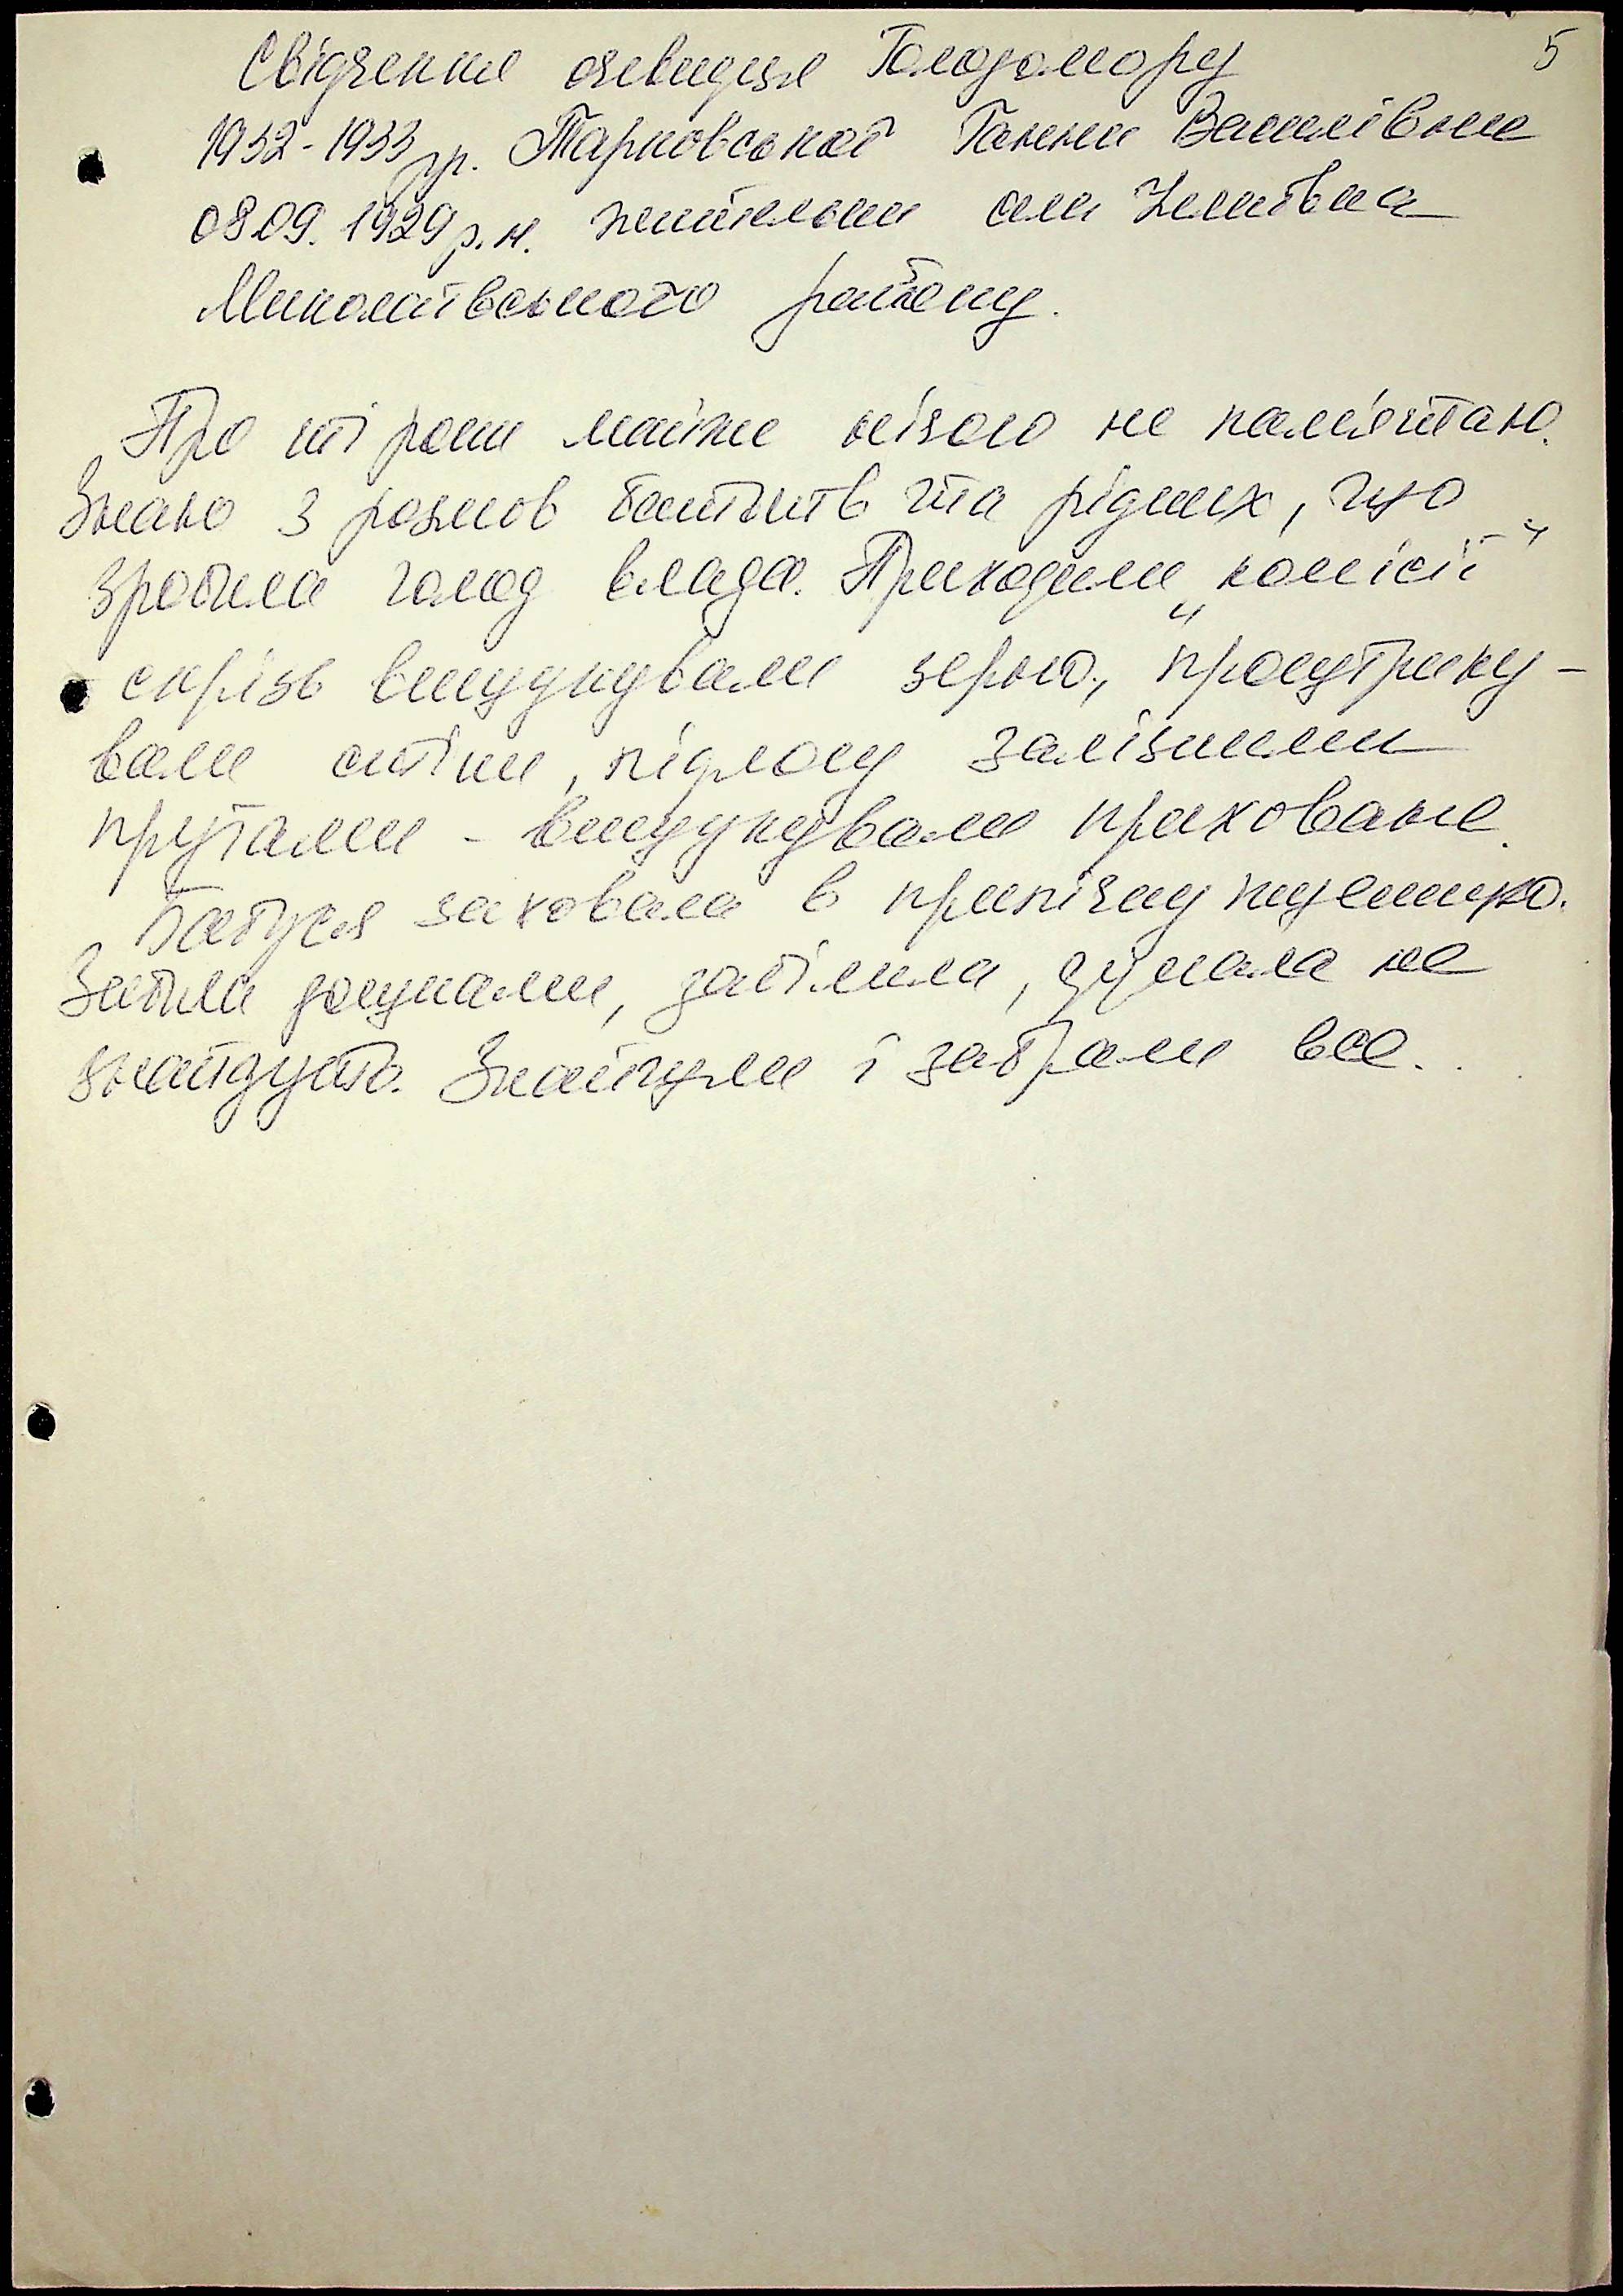 5
Свідчення очевидця Голодомору
1932-1933 рр. Тарновської Ганни Василівни
08.09.1929 р.н. жительки села
Миколаївського району.
Про ті роки майже нічого не пам'ятаю.
Знаю з розмов батьків та рідних, що
зробила голод влада. Приходили „комісії"
скрізь вишукували зерно, проштрику-
вали стіни, підлогу залізними
прутами - вишукували приховане.
Бабуся заховала в припічку пшеничко.
Забила дошками, забілила, думала не
знайдуть. Знайшли і забрали все...